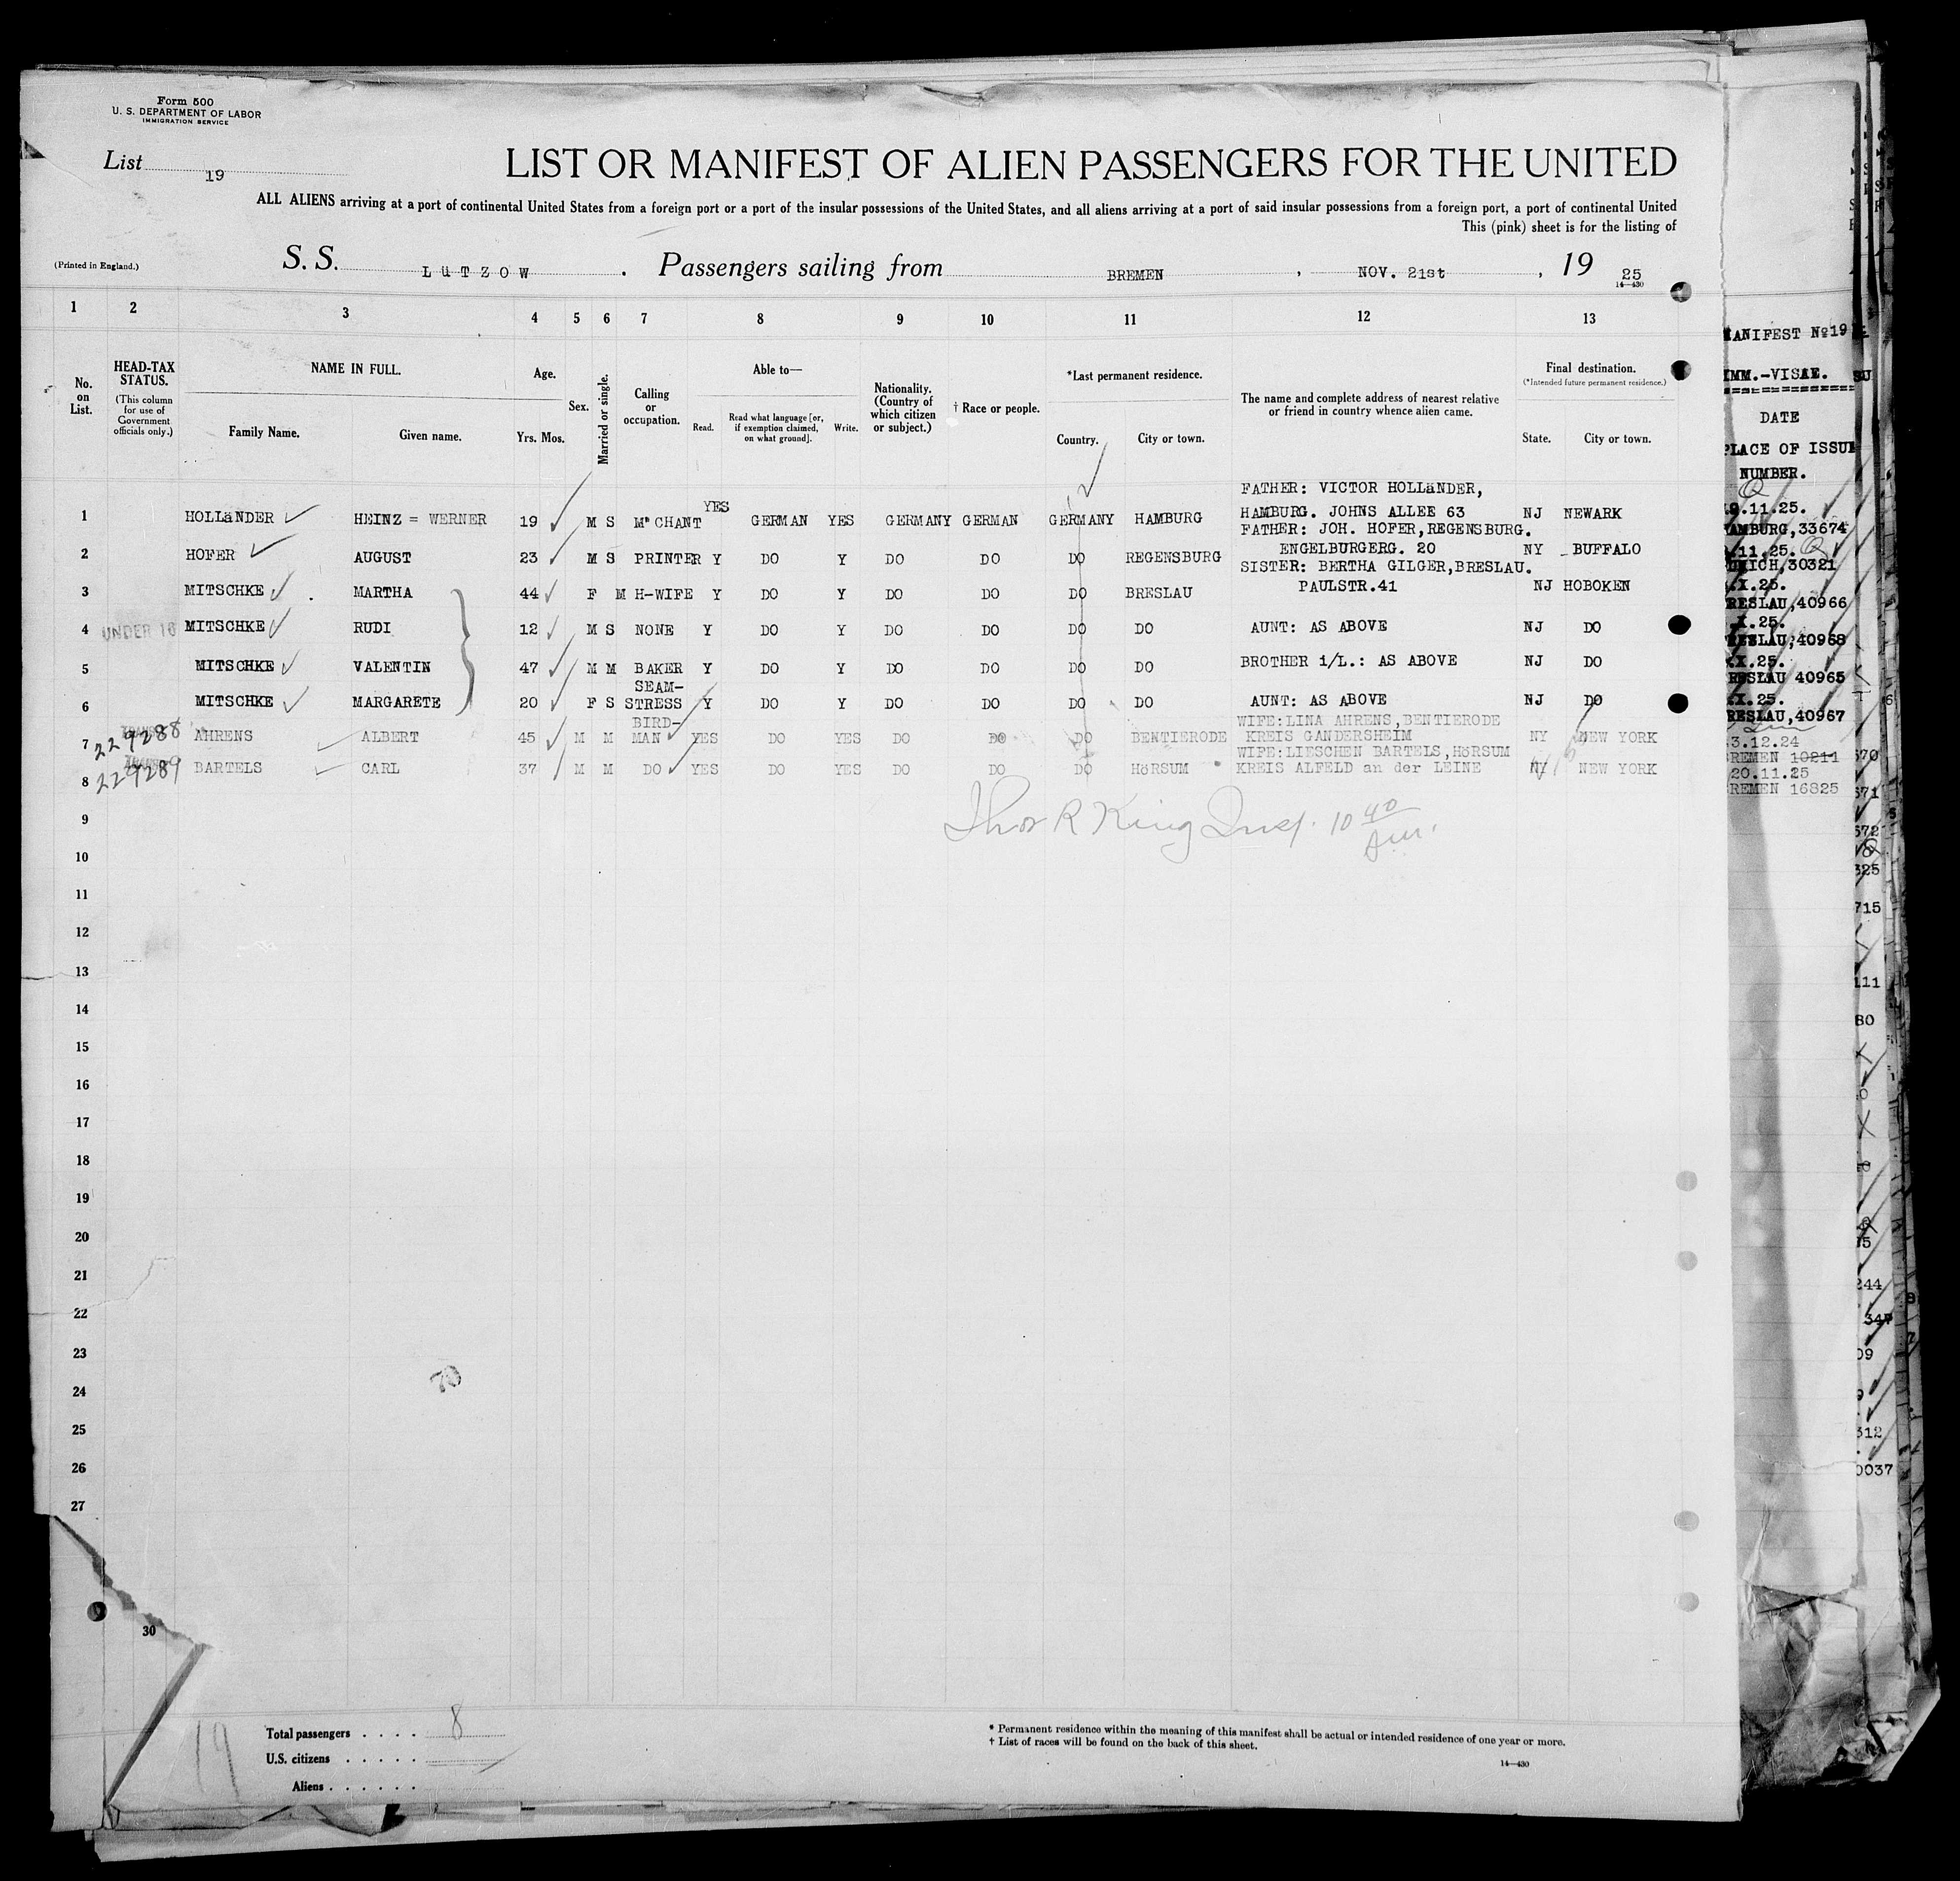 Form 500
U. S. DEPARTMENT OF LABOR
IMMIGRATION SERVICE
List 19
LIST OR MANIFEST OF ALIEN PASSENGERS FOR THE UNITED
ALL ALIENS arriving at a port of continental United States from a foreign port or a port of the insular possessions of the United States, and all aliens arriving at a port of said insular possessions from a foreign port, a port of continental United
This (pink) sheet is for the listing of
(Printed in England.)
S. S. LüTZOW. Passengers sailing from BREMEN, NOV. 21st, 19 25
14—430
1 2 3 4 5 6 7 8 9 10 11 12 13
No. on List.
HEAD-TAX STATUS.
(This column for use of Government officials only.)
NAME IN FULL.
Family Name. Given name.
Age.
Yrs. Mos.
Sex.
Married or single.
Calling or occupation.
Able to—
Read. Read what language [or, if exemption claimed, on what ground]. Write.
Nationality. (Country of which citizen or subject.)
† Race or people.
*Last permanent residence.
Country. City or town.
The name and complete address of nearest relative or friend in country whence alien came.
Final destination.
(*Intended future permanent residence.)
State. City or town.
MANIFEST No19
IMM.-VISAE.
DATE
PLACE OF ISSUE
NUMBER.
FATHER: VICTOR HOLLäNDER,
1 HOLLäNDER HEINZ = WERNER 19 M S M'CHANT YES GERMAN YES GERMANY GERMAN GERMANY HAMBURG HAMBURG. JOHNS ALLEE 63 NJ NEWARK
.11.25.
HAMBURG,33674
FATHER: JOH. HOFER,REGENSBURG.
2 HOFER AUGUST 23 M S PRINTER Y DO Y DO DO DO REGENSBURG ENGELBURGERG. 20 NY BUFFALO
.11.25.
30321
SISTER: BERTHA GILGER,BRESLAU.
3 MITSCHKE MARTHA 44 F M H-WIFE Y DO Y DO DO DO BRESLAU PAULSTR.41 NJ HOBOKEN
.X.25.
BRESLAU,40966
4 UNDER 16 MITSCHKE RUDI 12 M S NONE Y DO Y DO DO DO DO AUNT: AS ABOVE NJ DO
.X.25.
BRESLAU,40968
5 MITSCHKE VALENTIN 47 M M BAKER Y DO Y DO DO DO DO BROTHER i/L.: AS ABOVE NJ DO
.X.25.
BRESLAU 40965
6 MITSCHKE MARGARETE 20 F S SEAM-STRESS Y DO Y DO DO DO DO AUNT: AS ABOVE NJ DO
.X.25.
BRESLAU,40967
WIFE:LINA AHRENS,BENTIERODE
7 229288 AHRENS ALBERT 45 M M BIRD-MAN YES DO YES DO DO DO BENTIERODE KREIS GANDERSHEIM NY NEW YORK
3.12.24
BREMEN 10211
WIFE:LIESCHEN BARTELS,HöRSUM
8 229289 BARTELS CARL 37 M M DO YES DO YES DO DO DO HöRSUM KREIS ALFELD an der LEINE NY NEW YORK
20.11.25
BREMEN 16825
Thos R King Insp. 10 40 am.
9
10
11
12
13
14
15
16
17
18
19
20
21
22
23
24
25
26
27
30
19
Total passengers . . . . 8
U.S. citizens . . . . .
Aliens . . . . . .
* Permanent residence within the meaning of this manifest shall be actual or intended residence of one year or more.
† List of races will be found on the back of this sheet.
14—430